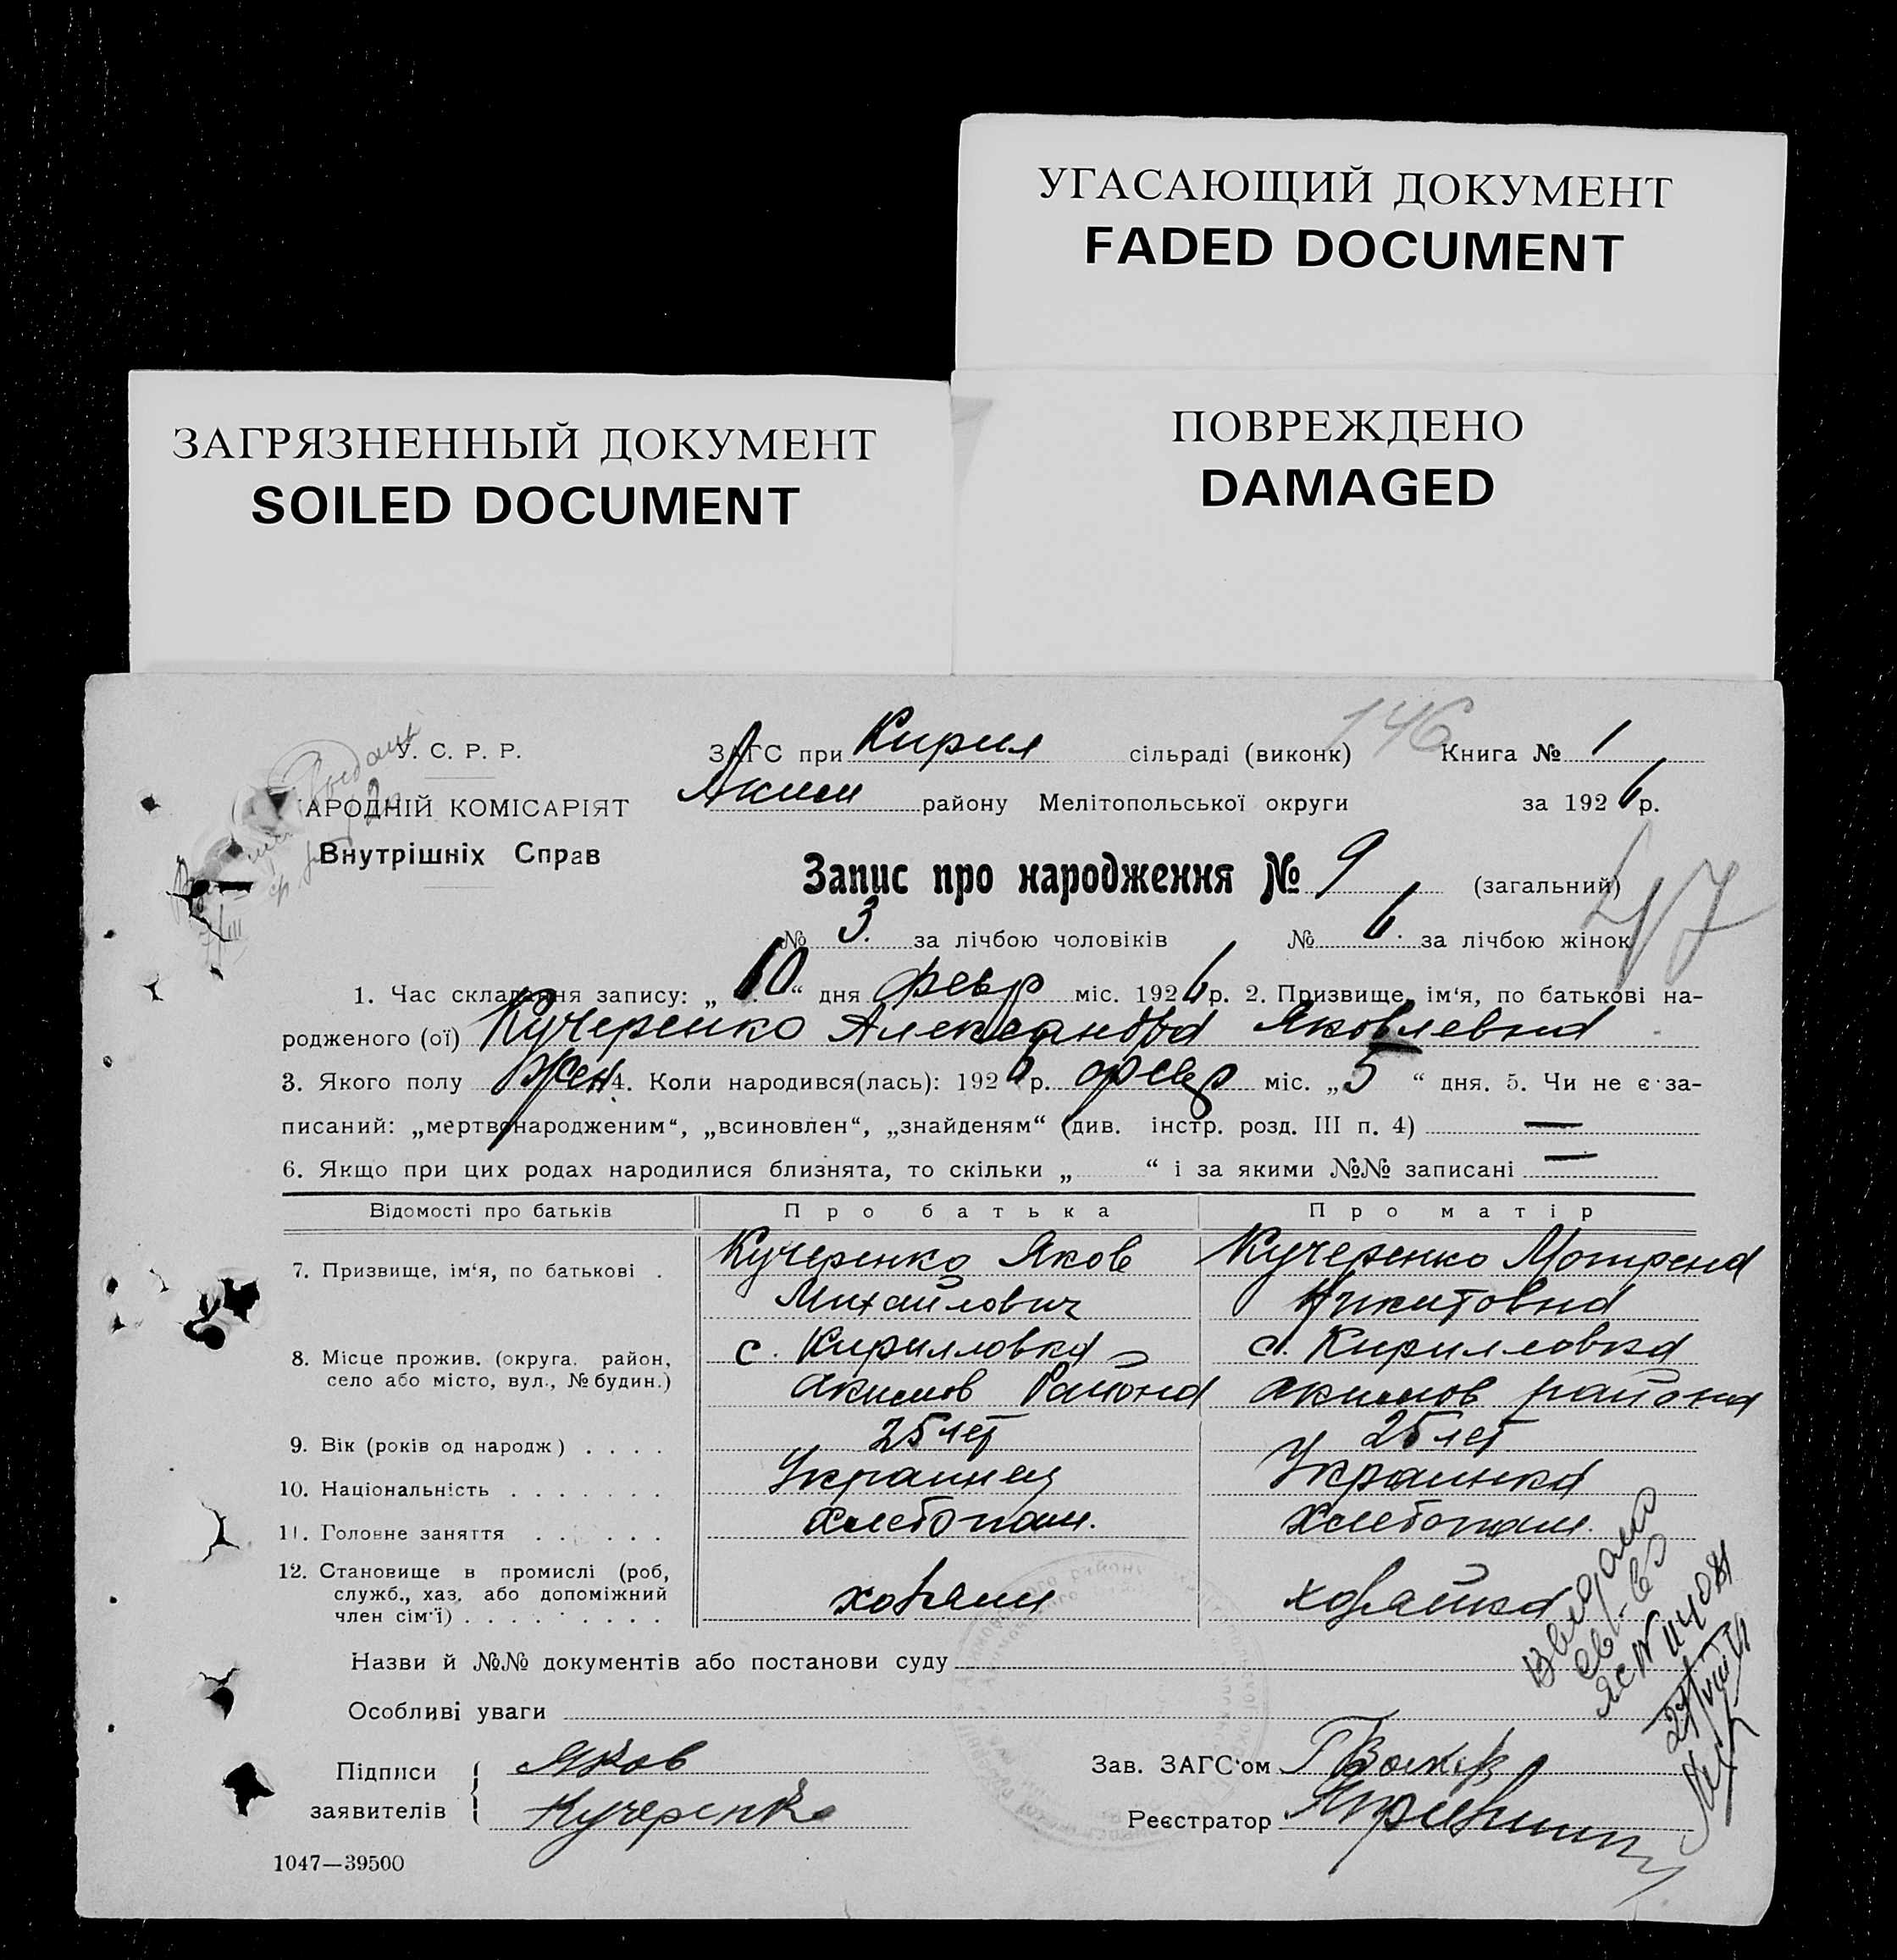 УГАСАЮЩИЙ ДОКУМЕНТ
FADED DOCUMENT
ЗАГРЯЗНЕННЫЙ ДОКУМЕНТ
SOILED DOCUMENT
ПОВРЕЖДЕНО
DAMAGED
146
У. С. Р. Р.
ЗАГС при Кирил сільраді (виконк) Книга № 1
АРОДНІЙ КОМІСАРІЯТ
Аким району Мелітопольської округи за 1926 р.
Внутрішніх Справ
Запис про народження № 9 (загальний)
47
№ 3. за лічбою чоловіків № 6. за лічбою жінок
1. Час складання запису: „10“ дня февр міс. 1926 р. 2. Призвище, ім'я, по батькові на-
родженого (ої) Кучеренко Александра Яковлевна
3. Якого полу Жен. 4. Коли народився(лась): 1926 р. февр міс. „5“ дня. 5. Чи не є за-
писаний: „мертвонародженим“, „всиновлен“, „знайденям“ (див. інстр. розд. III п. 4) —
6. Якщо при цих родах народилися близнята, то скільки „ “ і за якими №№ записані —
Відомості про батьків Про батька Про матір
7. Призвище, ім'я, по батькові . Кучеренко Яков Кучеренко Мотрена
Михайлович Никитовна
8. Місце прожив. (округа, район, с. Кирилловка с. Кирилловка
село або місто, вул., № будин.) Акимов Района Акимов района
9. Вік (років од народж) . . . . 25 лет 25 лет
10. Національність . . . . . . . Украинец Украинка
11. Головне заняття . . . . . . Хлебопаш. Хлебопаш.
12. Становище в промислі (роб,
служб., хаз. або допоміжний хозяин хозяйка
член сім'ї) . . . . . . . . .
Назви й №№ документів або постанови суду
Особливі уваги
Підписи Яков Зав. ЗАГС'ом
заявителів Кучеренко Реєстратор
1047—39500